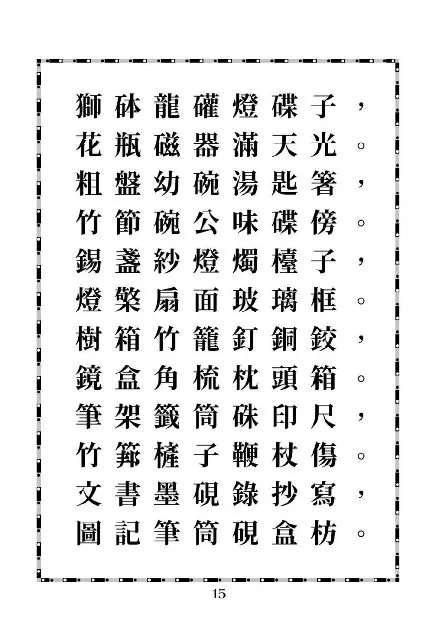 獅砵龍礶燈碟子，
花瓶磁器滿天光。
粗盤幼碗湯匙箸，
竹節碗公味碟傍。
錫盞紗燈燭檯子，
燈檠扇面玻璃框。
樹箱竹籠釘銅鉸，
鏡盒角梳枕頭箱。
筆架籤筒硃印尺，
竹箂樁子鞭杖傷。
文書墨硯錄抄寫，
圖記筆筒硯盒枋。
15